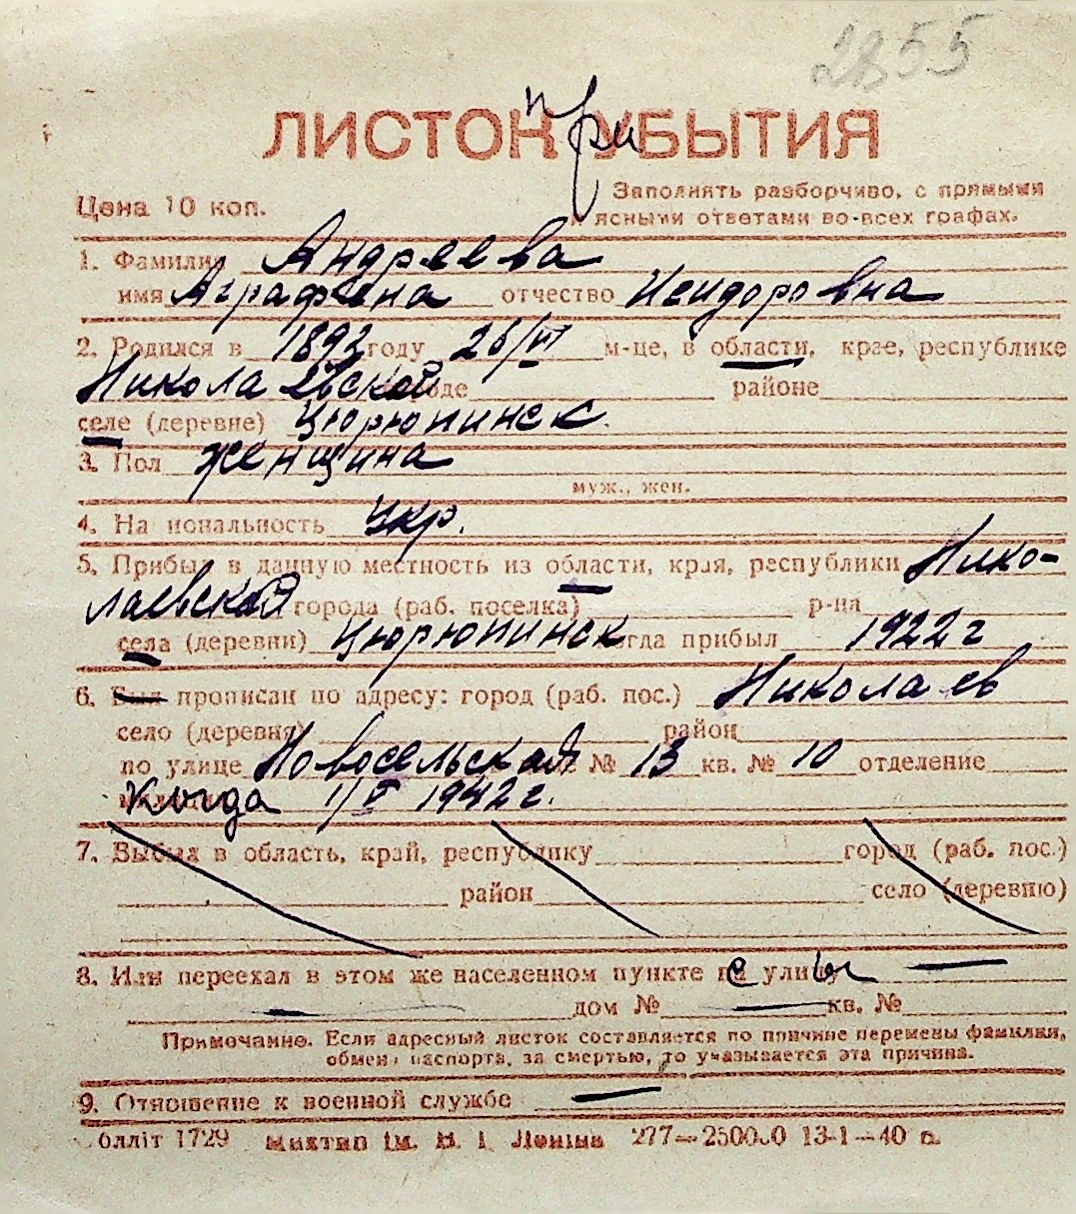 2855
ЛИСТОК при УБЫТИЯ
Цена 10 коп.
Заполнять разборчиво, с прямыми
и ясными ответами во-всех графах.
1. Фамилия Андреева
имя Аграфена отчество Исидоровна
2. Родился в 1892 году 26/VI м-це, в области, крае, республике
Николаевской городе районе
селе (деревне) Цюрюпинск.
3. Пол женщина
муж., жен.
4. Национальность Укр.
5. Прибыл в данную местность из области, края, республики Нико-
лаевской города (раб. поселка) р-на
села (деревни) Цюрюпинск когда прибыл 1922 г
6. Был прописан по адресу: город (раб. пос.) Николаев
село (деревня) район
по улице Новосельская № 13 кв. № 10 отделение
Когда 1942 г.
7. Выбыл в область, край, республику город (раб. пос.)
район село (деревню)
8. Или переехал в этом же населенном пункте с улицы —
— дом № — кв. №
Примечание. Если адресный листок составляется по причине перемены фамилии,
обмена паспорта, за смертью, то указывается эта причина.
9. Отношение к военной службе —
облліт 1729 Миктип ім. В. І. Леніна 277—250000 13-1—40 р.